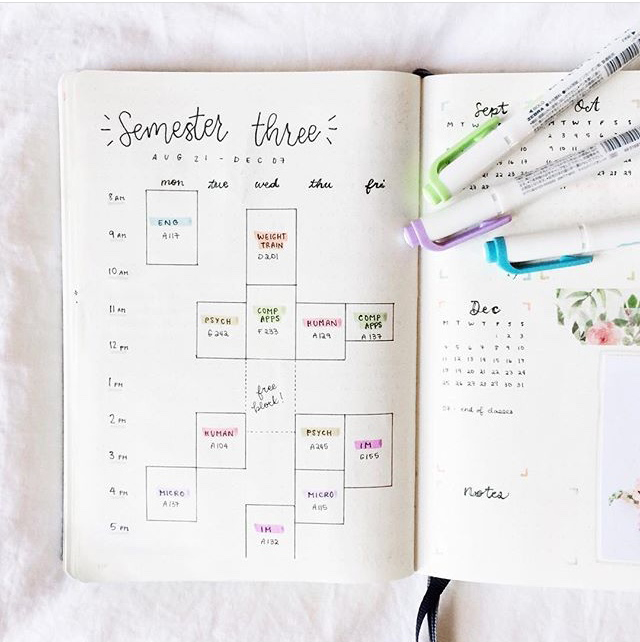 Semester three
AUG 21 - DEC 07
mon tue wed thu fri
8 AM
ENG
A117
9 AM
WEIGHT
TRAIN
D201
10 AM
11 AM
PSYCH
G242
COMP
APPS
F233
HUMAN
A129
COMP
APPS
A137
12 PM
1 PM
free
block!
2 PM
HUMAN
A104
PSYCH
A245
IM
G155
3 PM
4 PM
MICRO
A137
MICRO
A115
5 PM
IM
A132
Sept
M T W
Oct
Dec
M T W T F S S
1 2 3
4 5 6 7 8 9 10
11 12 13 14 15 16 17
18 19 20 21 22 23 24
25 26 27 28 29 30 31
07 - end of classes
notes